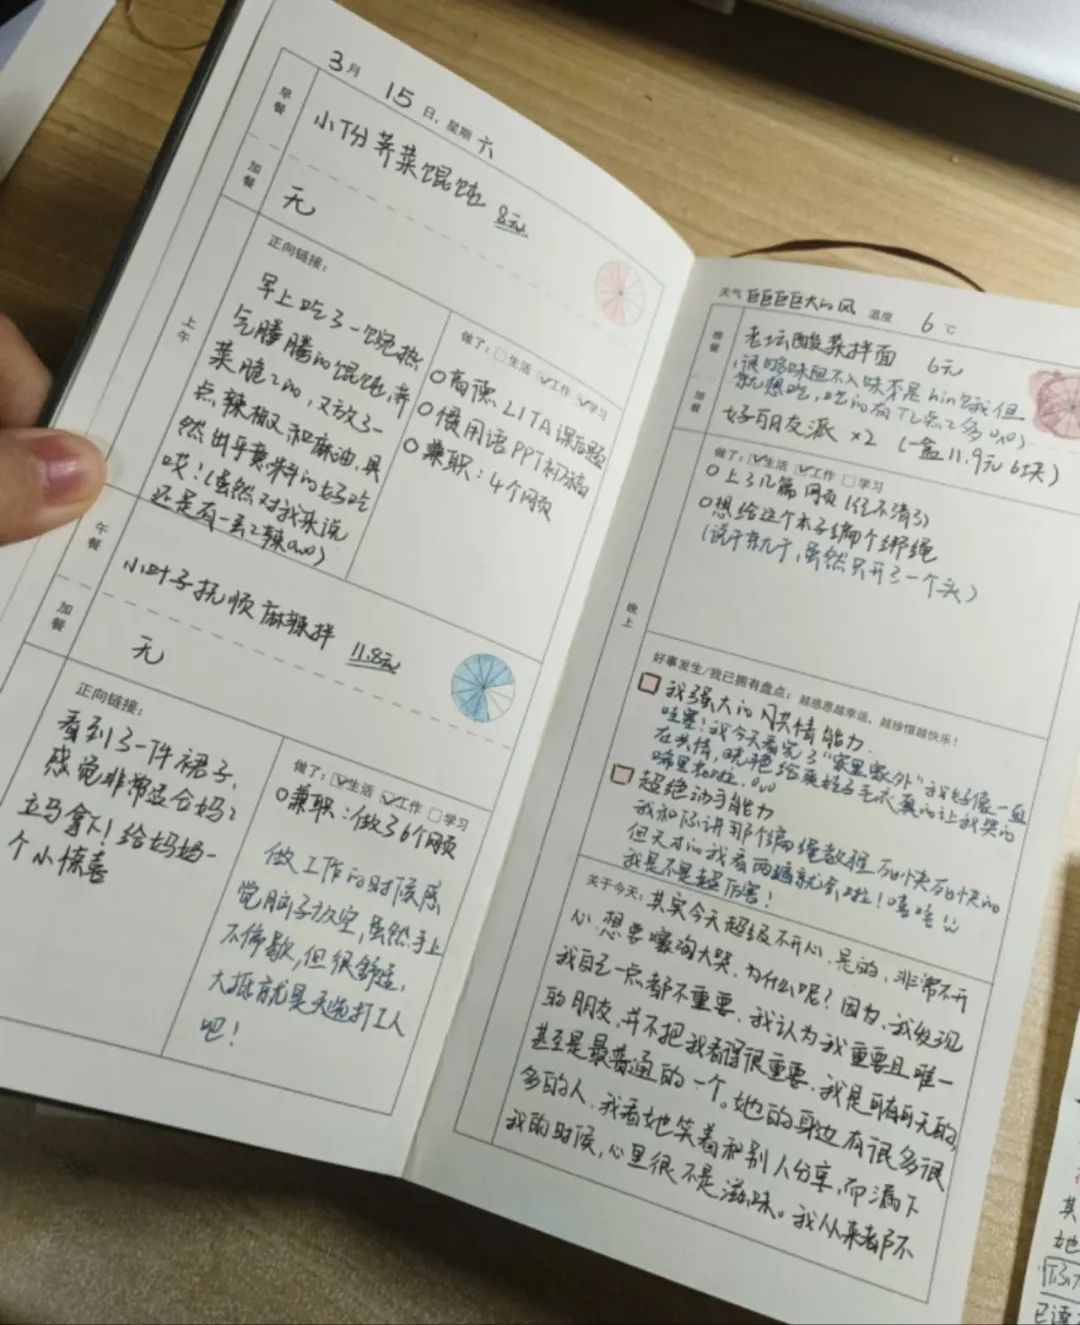 3月
15日，星期六
早餐
小份荠菜馄饨 8元
加餐
无
上午
正向链接：
早上吃了一碗热
气腾腾的馄饨,荠
菜脆脆的，又放了一
点辣椒和麻油,果
然出乎意料的好吃
哎！(虽然对我来说
还是有一丢丢辣
做了：□生活 ☑工作 ☑学习
LITA课后题
惯用语PPT初稿
兼职：4个网页
午餐
小叶子抚顺麻辣拌 11.8元
加餐
无
正向链接：
看到了一件裙子,
感觉非常适合妈妈
立马拿下！给妈妈一
个小惊喜
做了：☑生活 ☑工作 □学习
兼职：做了6个网页
做工作的时候感
觉脑子放空,虽然手上
不停歇,但很舒适,
大抵就是天选打工人
吧！
天气 巨巨巨巨大的风 温度 6℃
晚餐
老坛酸菜拌面 6元
加餐
好朋友派 ×2 (一盒11.9元 6块)
晚上
做了：☑生活 ☑工作 □学习
上了几篇网页(记不清了)
想给这个本子编个绑绳
(说干就干,虽然只开了一个头)
好事发生/我已拥有盘点：越感恩越幸运，越珍惜越快乐！
我强大的共情能力
哇塞！我今天看完了“家里家外”我好像一直
在共情,
超绝动手能力
我和你讲那个编绳教程 死快死快的
但天才的我看两遍就会啦！嘻嘻
我是不是超厉害！
关于今天：其实今天超级不开心,是的,非常不开
心,想要嚎啕大哭,为什么呢？因为,我发现
我自己一点都不重要,我认为我重要且唯一
的朋友,并不把我看得很重要,我是可有可无的,
甚至是最普通的一个。她的身边有很多很
多的人,我看她笑着和别人分享,而漏下
我的时候,心里很不是滋味。我从来都不